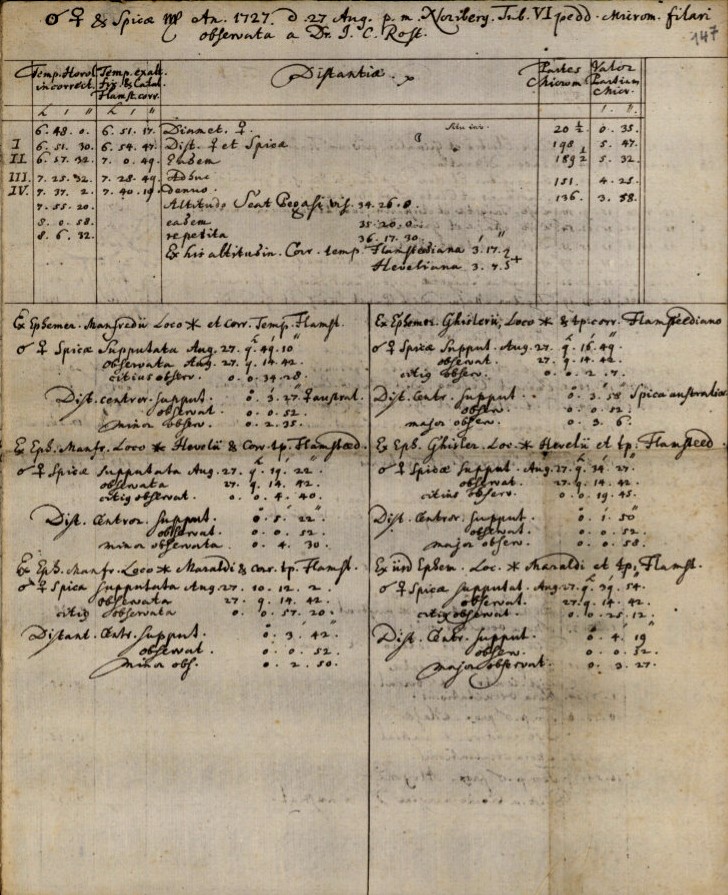 ☌ ♀ & Spicæ ♍ An. 1727. d. 27 Aug. p. m. Noriberg. Tub. VI pedd. Microm. filari
observata a Dr. J. C. Rost.
147
Temp. Horol. incorrect. Temp. exalt. Flamst. corr. Distantiæ Partes Microm. Valor Partium Micr.
6. 48. 0. 6. 51. 17. Diamet. ♀. 20 ½ 0. 35.
I 6. 51. 30. 6. 54. 47. Dist. ♀ et Spica 198 5. 47.
II. 6. 57. 32. 7. 0. 49. Eadem 189 ½ 5. 32.
III. 7. 25. 32. 7. 28. 49. Adhuc 151. 4. 25.
IV. 7. 37. 2. 7. 40. 19. Denuo. 136. 3. 58.
7. 55. 20. Altitudo Scat Pegasi vis. 34. 26. 0.
8. 0. 58. eadem 35. 20. 0.
8. 6. 32. repetita 36. 17. 30.
Ex his altitudin. Corr. temp. Flamstediana 3. 17.
Heveliana 3. 4.
Ex Ephemer. Manfredii Loco * et Corr. Temp. Flamst.
☌ ♀ Spicæ Supputata Aug. 27. 9. 49. 10
observata Aug. 27. 9. 14. 42.
citius observ. 0. 0. 34. 28.
Dist. centror. supput. 0. 3. 27 ♀ austral.
observat. 0. 0. 52.
minor observ. 0. 2. 35.
Ex Eph. Manfr. Loco * Hevelii & Corr. tp. Flamsteed.
☌ ♀ Spicæ Supputata Aug. 27. 9. 19. 22.
observata 27. 9. 14. 42.
citig observat. 0. 0. 4. 40.
Dist. Centror. Supput. 0. 5. 22
observat. 0. 0. 52.
minor observata 0. 4. 30.
Ex Eph. Manfr. Loco * Maraldi & corr. tp. Flamst.
☌ ♀ Spica Supputata Aug. 27. 10. 12. 2.
observata 27. 9. 14. 42.
citig observata 0. 0. 57. 20.
Distant. Centr. Supput. 0. 3. 42
observat. 0. 0. 52.
minor obs. 0. 2. 50.
Ex Ephemer. Ghislerii, Loco * & tp. corr. Flamsteediano
☌ ♀ Spicæ Supput. Aug. 27. 9. 16. 49.
observat. 27. 9. 14. 42.
citig observ. 0. 0. 2. 7.
Dist. Centr. Supput. 0. 3. 58 Spica australior
observ. 0. 0. 52.
major observ. 0. 3. 6.
Ex Eph. Ghisler. Loc. * Hevelii et tp. Flamsteed.
☌ ♀ Spicæ Supput Aug. 27. 9. 34. 27
observat 27. 9. 14. 42.
citius observ. 0. 0. 19. 45.
Dist. Centror. Supput. 0. 1. 50
observat. 0. 0. 52.
major observ. 0. 0. 58.
Ex iisd Ephem. Loc. * Maraldi et tp. Flamst.
☌ ♀ Spicæ Supputat Aug. 27. 9. 39. 54.
observat. 27. 9. 14. 42.
citig observat 0. 0. 25. 12.
Dist. Centr. Supput. 0. 4. 19
observ. 0. 0. 52.
major observat. 0. 3. 27.